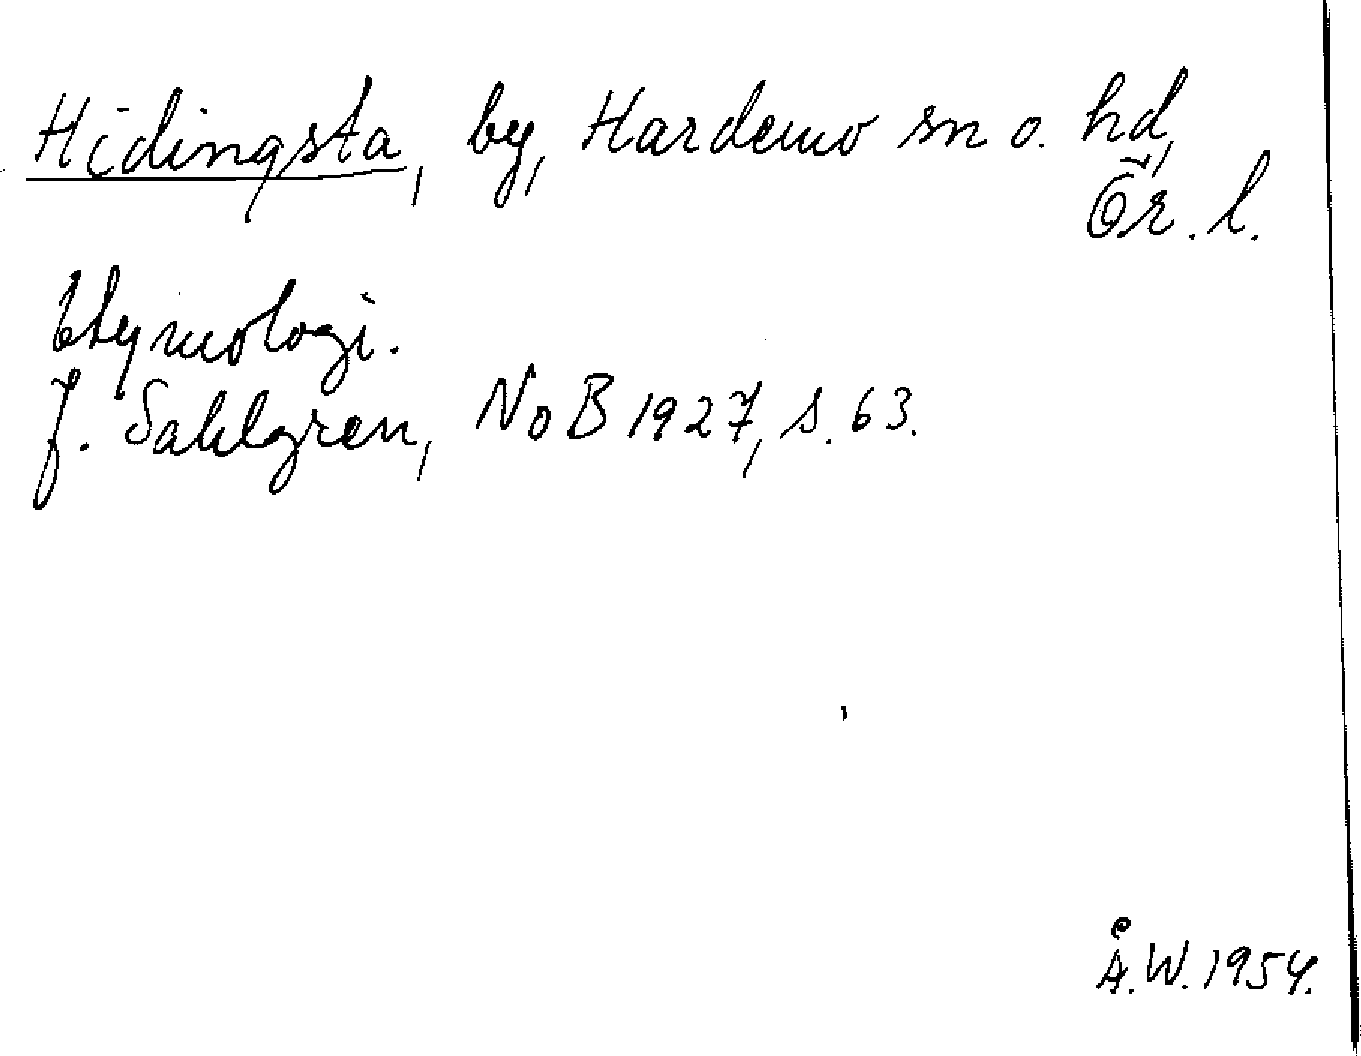 Hidingsta, by, Hardemo sn o. hd,
Ör. l.
Etymologi.
J. Sahlgren, NoB 1927, s. 63.
Å.W. 1954.